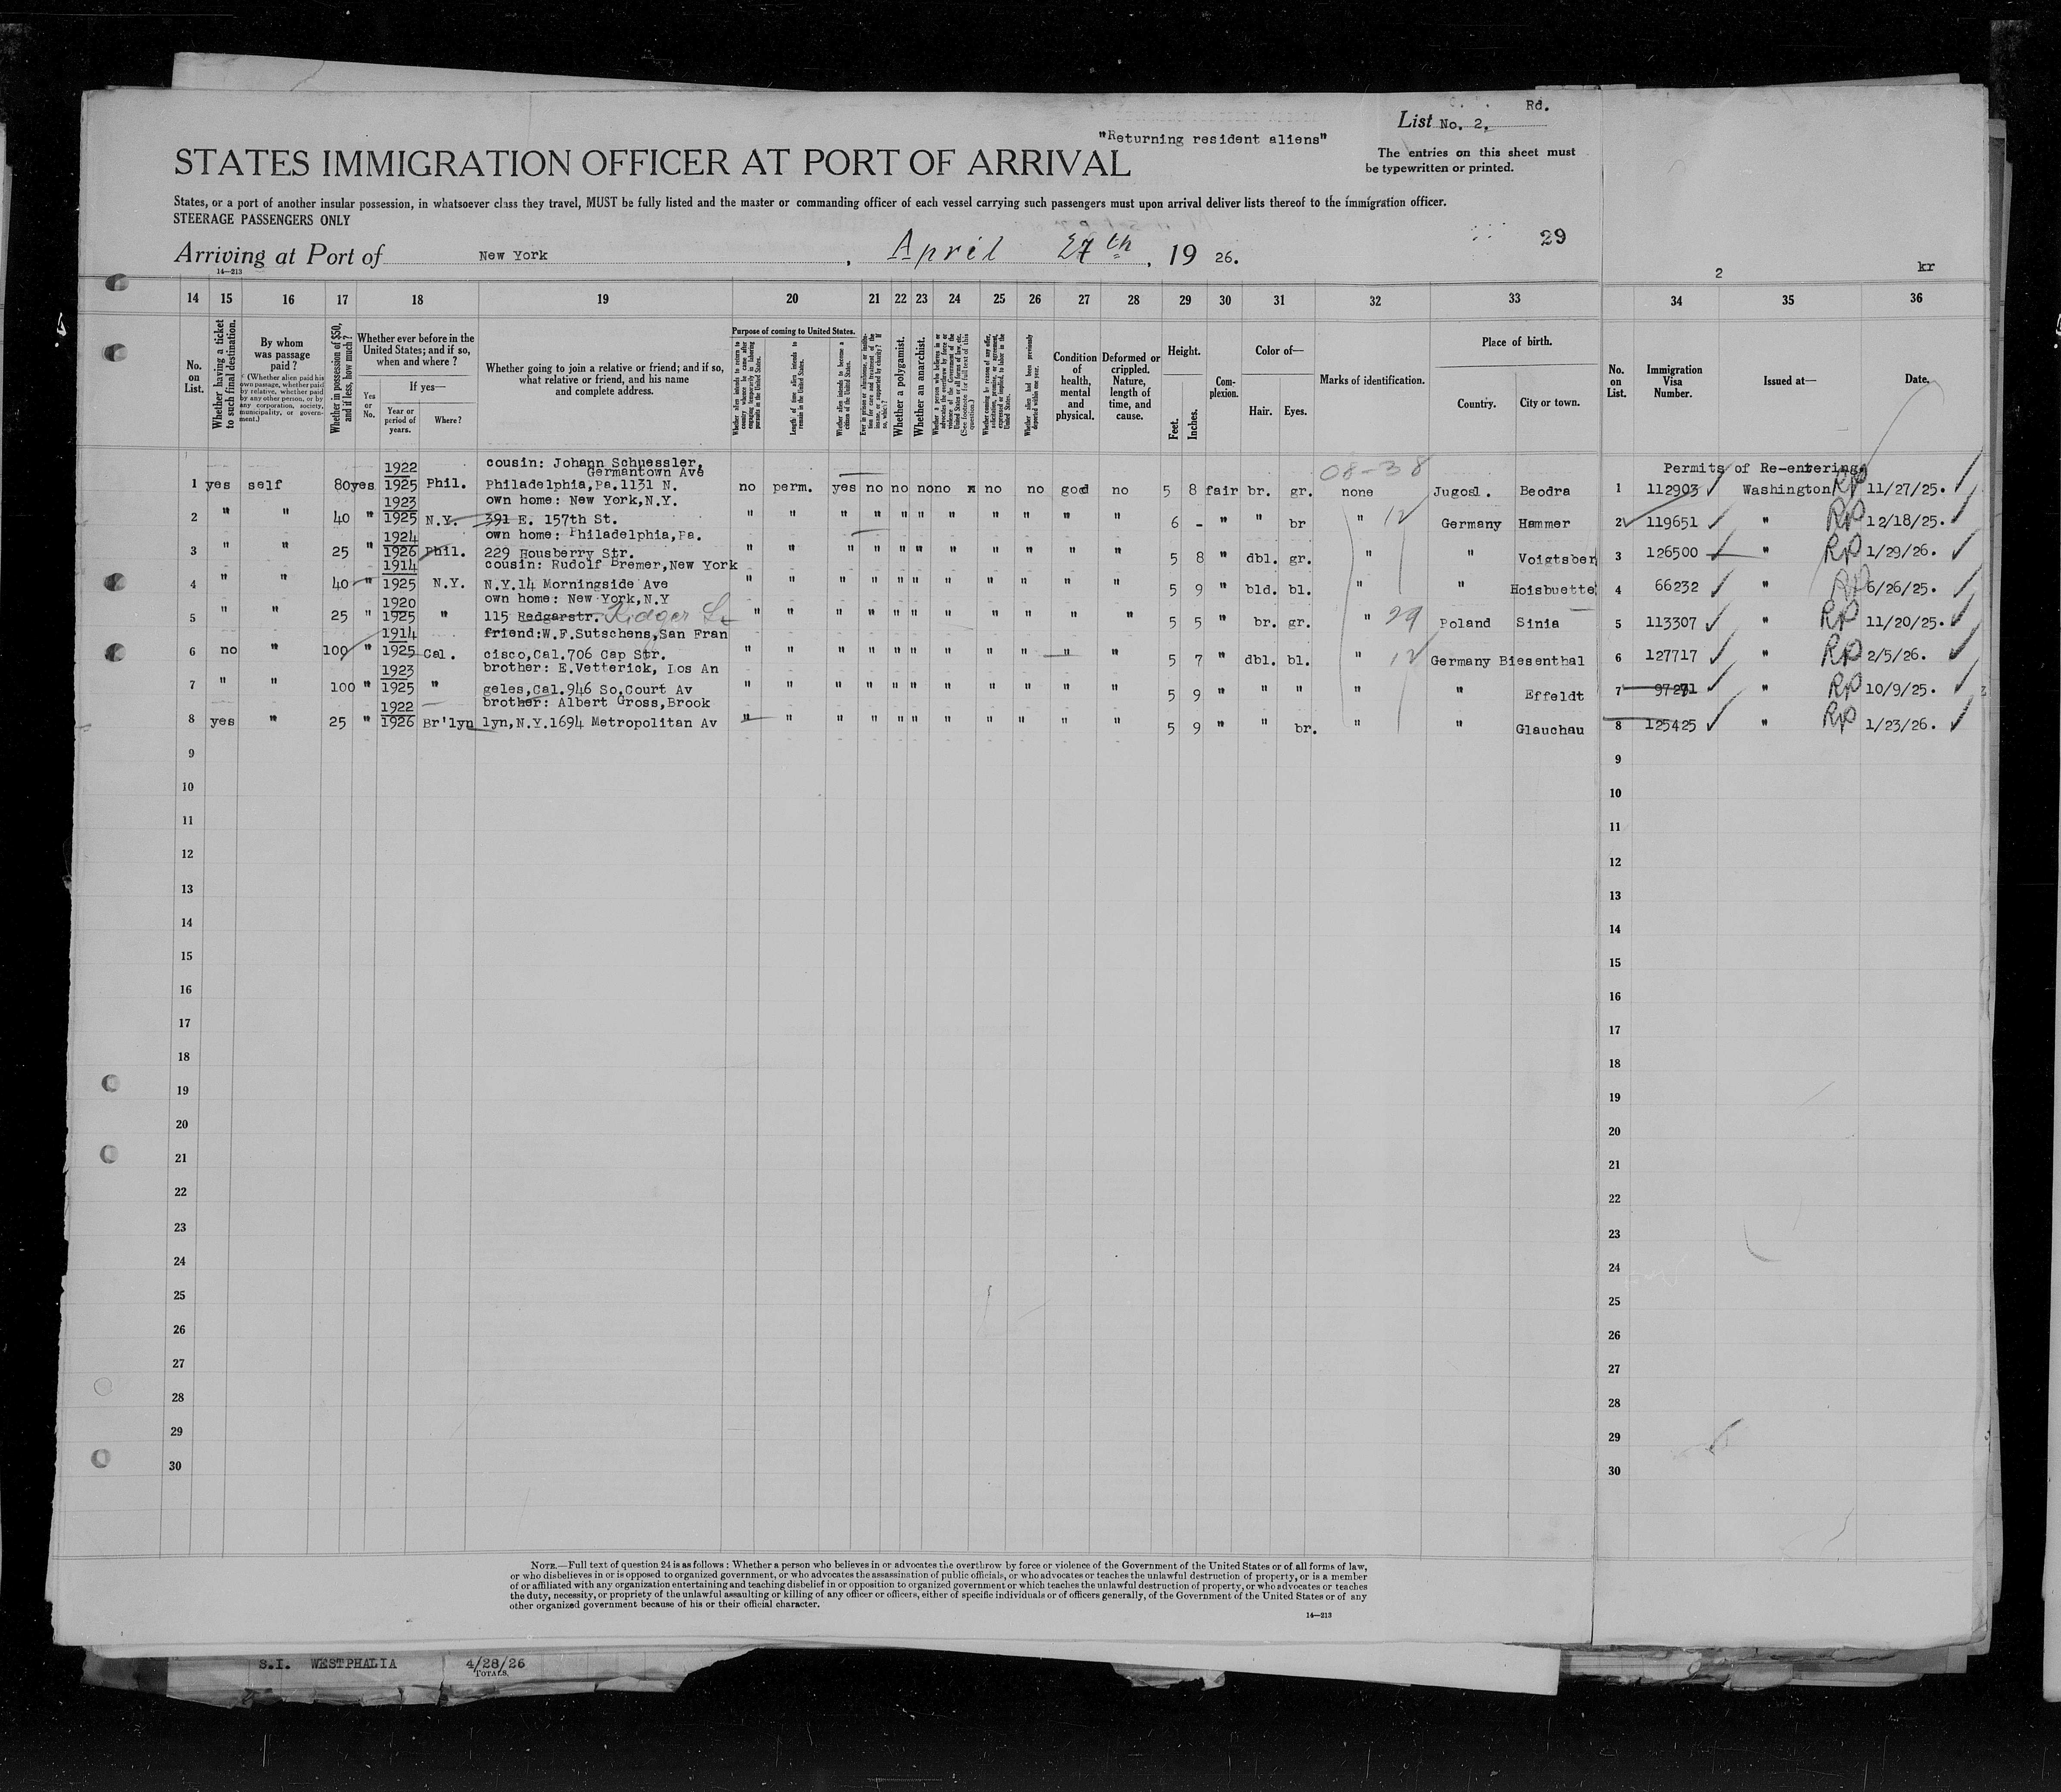 Rd.
List No. 2,
"Returning resident aliens"
The entries on this sheet must
be typewritten or printed.
STATES IMMIGRATION OFFICER AT PORT OF ARRIVAL
States, or a port of another insular possession, in whatsoever class they travel, MUST be fully listed and the master or commanding officer of each vessel carrying such passengers must upon arrival deliver lists thereof to the immigration officer.
STEERAGE PASSENGERS ONLY
29
Arriving at Port of New York, April 27th, 19 26.
14—213
2 kr
14 15 16 17 18 19 20 21 22 23 24 25 26 27 28 29 30 31 32 33 34 35 36
No. on List.
Whether having a ticket to such final destination.
By whom was passage paid?
(Whether alien paid his own passage, whether paid by relative, whether paid by any other person, or by any corporation, society, municipality, or government.)
Whether in possession of $50, and if less, how much?
Whether ever before in the United States; and if so, when and where?
Yes or No.
If yes—
Year or period of years.
Where?
Whether going to join a relative or friend; and if so, what relative or friend, and his name and complete address.
Purpose of coming to United States.
Whether alien intends to return to country whence he came after engaging temporarily in laboring pursuits in the United States.
Length of time alien intends to remain in the United States.
Whether alien intends to become a citizen of the United States.
Ever in prison or almshouse, or institution for care and treatment of the insane, or supported by charity? If so, which?
Whether a polygamist.
Whether an anarchist.
Whether a person who believes in or advocates the overthrow by force or violence of the Government of the United States or all forms of law, etc. (See footnote for full text of this question.)
Whether coming by reason of any offer, solicitation, promise, or agreement, expressed or implied, to labor in the United States.
Whether alien had been previously deported within one year.
Condition of health, mental and physical.
Deformed or crippled. Nature, length of time, and cause.
Height.
Feet. Inches.
Complexion.
Color of—
Hair. Eyes.
Marks of identification.
Place of birth.
Country. City or town.
No. on List.
Immigration Visa Number.
Issued at—
Date.
08-38
Permits of Re-entering
1922 cousin: Johann Schuessler,
Germantown Ave
1 yes self 80 yes 1925 Phil. Philadelphia,Pa.1131 N. no perm. yes no no no no x no no good no 5 8 fair br. gr. none Jugosl. Beodra 1 112903 Washington RP 11/27/25.
1923 own home: New York,N.Y.
2 " " 40 " 1925 N.Y. 391 E. 157th St. " " " " " " " " " " " 6 - " " br " 12 Germany Hammer 2 119651 " RP 12/18/25.
1924 own home: Philadelphia,Pa.
3 " " 25 " 1926 Phil. 229 Housberry Str. " " " " " " " " " " " 5 8 " dbl. gr. " " Voigtsber 3 126500 " RP 1/29/26.
1914 cousin: Rudolf Bremer,New York
4 " " 40 " 1925 N.Y. N.Y.14 Morningside Ave " " " " " " " " " " " 5 9 " bld. bl. " " Hoisbuette 4 66232 " RP 6/26/25.
1920 own home: New York,N.Y
5 " " 25 " 1925 " 115 Redgarstr. " " " " " " " " " " " 5 5 " br. gr. " 29 Poland Sinia 5 113307 " RP 11/20/25.
1914 friend:W.F.Sutschens,San Fran
6 no " 100 " 1925 Cal. cisco,Cal.706 Cap Str. " " " " " " " " " " " 5 7 " dbl. bl. " 12 Germany Biesenthal 6 127717 " RP 2/5/26.
1923 brother: E.Vetterick, Los An
7 " " 100 " 1925 " geles,Cal.946 So,Court Av " " " " " " " " " " " 5 9 " " " " " Effeldt 7 97271 " RP 10/9/25.
1922 brother: Albert Gross,Brook
8 yes " 25 " 1926 Br'lyn lyn,N.Y.1694 Metropolitan Av " " " " " " " " " " " 5 9 " " br. " " Glauchau 8 125425 " RP 1/23/26.
9 9
10 10
11 11
12 12
13 13
14 14
15 15
16 16
17 17
18 18
19 19
20 20
21 21
22 22
23 23
24 24
25 25
26 26
27 27
28 28
29 29
30 30
NOTE.—Full text of question 24 is as follows: Whether a person who believes in or advocates the overthrow by force or violence of the Government of the United States or of all forms of law,
or who disbelieves in or is opposed to organized government, or who advocates the assassination of public officials, or who advocates or teaches the unlawful destruction of property, or is a member
of or affiliated with any organization entertaining and teaching disbelief in or opposition to organized government or which teaches the unlawful destruction of property, or who advocates or teaches
the duty, necessity, or propriety of the unlawful assaulting or killing of any officer or officers, either of specific individuals or of officers generally, of the Government of the United States or of any
other organized government because of his or their official character.
14—213
S.I. WESTPHALIA 4/28/26
TOTALS.